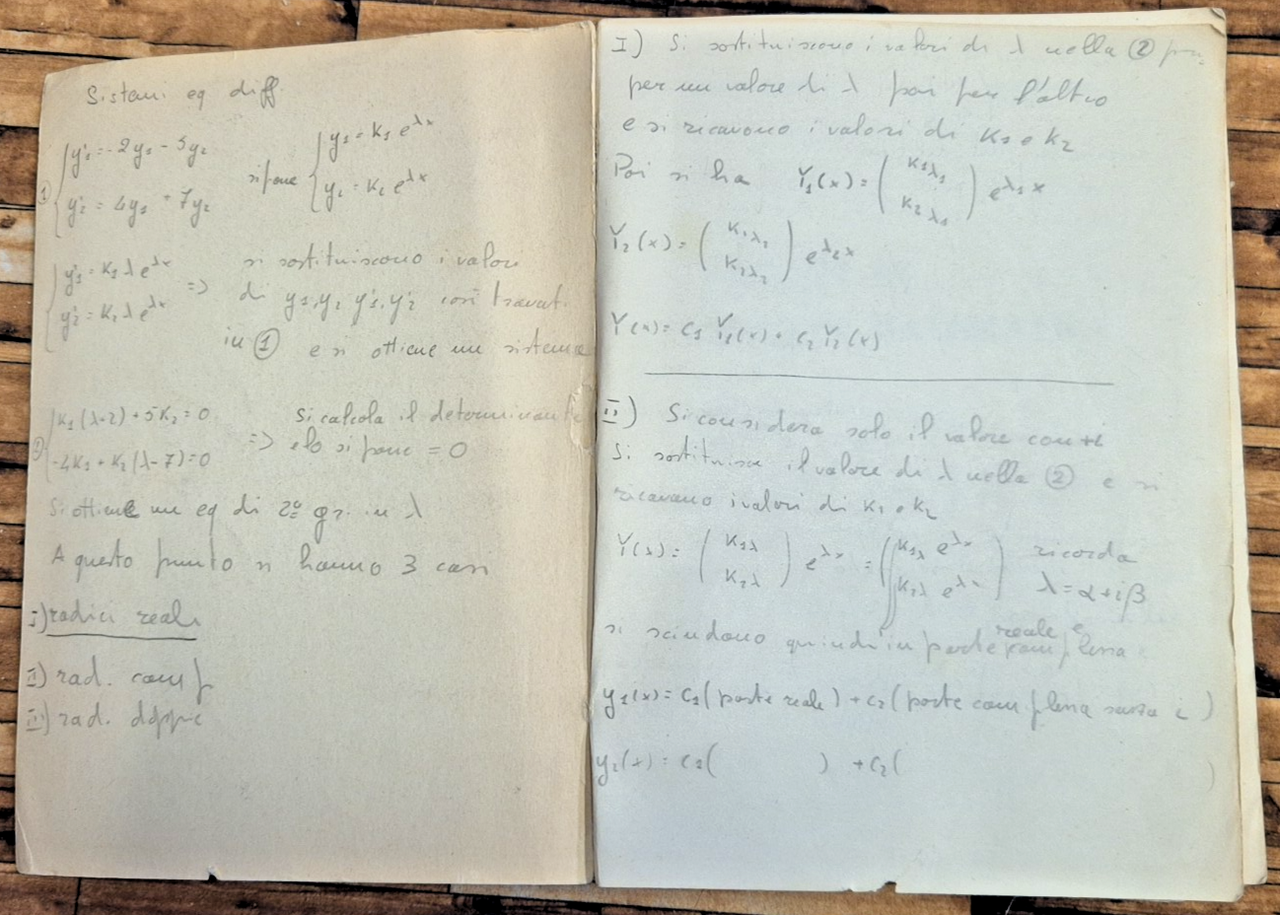 Sistemi eq diff
① { y'1 = -2y1 - 5y2
y'2 = 4y1 + 7y2
si pone { y1 = K1 e^λx
y2 = K2 e^λx
{ y'1 = K1 λ e^λx
y'2 = K2 λ e^λx =>
si sostituiscono i valore
di y1, y2 y'1, y'2 così trovat.
in ① e si ottiene un sistema
② { K1 (λ+2) + 5K2 = 0
-4K1 + K2 (λ-7) = 0
=> Si calcola il determinante
e lo si pone = 0
Si ottiene un eq di 2º gr. in λ
A questo punto si hanno 3 casi
I) radici reali
II) rad. comp
III) rad. doppie
I) Si sostituiscono i valori di λ nella ②
per un valore di λ poi per l'altro
e si ricavono i valori di K1 e K2
Poi si ha Y1(x) = ( K1λ1 K2λ1 ) e^λ1x
Y2(x) = ( K1λ2 K2λ2 ) e^λ2x
Y(x) = C1 Y1(x) + C2 Y2(x)
II) Si considera solo il valore con +i
Si sostituisce il valore di λ nella ② e si
ricavano i valori di K1 e K2
Y(x) = ( K1λ K2λ ) e^λx = ( K1λ e^λx K2λ e^λx ) ricorda
λ = α + iβ
si scindono quindi in parte reale e complessa
y1(x) = C1 ( parte reale ) + C2 ( parte complessa senza i )
y2(x) = C1 ( ) + C2 ( )